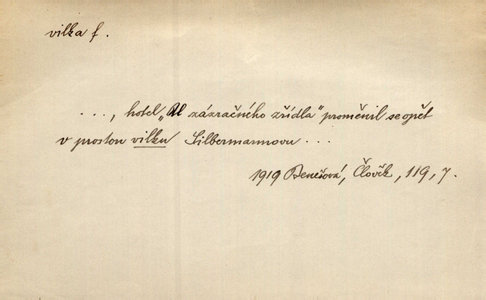 vilka f.
..., hotel „U zázračného zřídla" proměnil se opět
v prostou vilku Silbermannovu ...
1919 Benešová, Člověk, 119, 7.